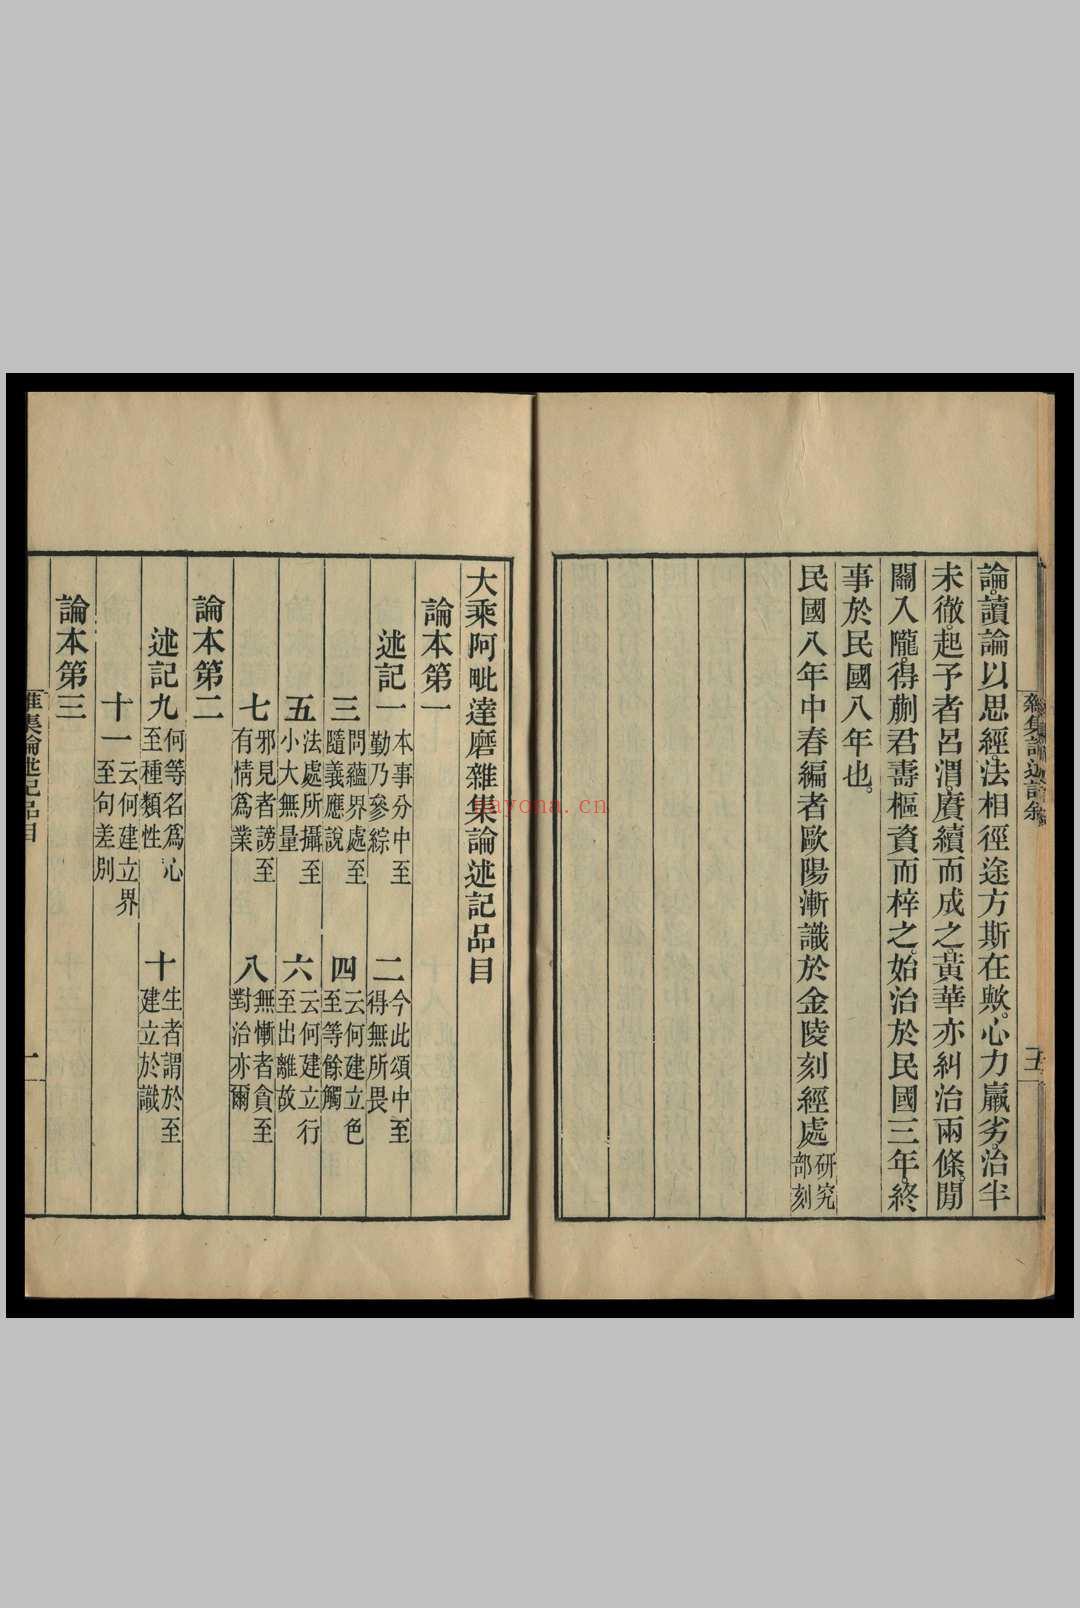 論讀論以思經法相徑途方斯在歟心力羸劣治半
未徹起予者呂渭賡續而成之黃華亦糾治兩條閒
關入隴得蒯君壽樞資而梓之始治於民國三年終
事於民國八年也
民國八年中春編者歐陽漸識於金陵刻經處研究部刻
五
大乘阿毗達磨雜集論述記品目
論本第一
述記一 本事分中至勤乃參綜 二 今此頌中至得無所畏
三 問蘊界處至隨義應說 四 云何建立色至等餘觸
五 法處所攝至小大無量 六 云何建立行至出離故
七 邪見者謗至有情爲業 八 無慚者貪至對治亦爾
論本第二
述記九 何等名爲心至種類性 十 生者謂於至建立於識
十一 云何建立界至句差別
論本第三
雜集論述記品目
一
nayona.cn